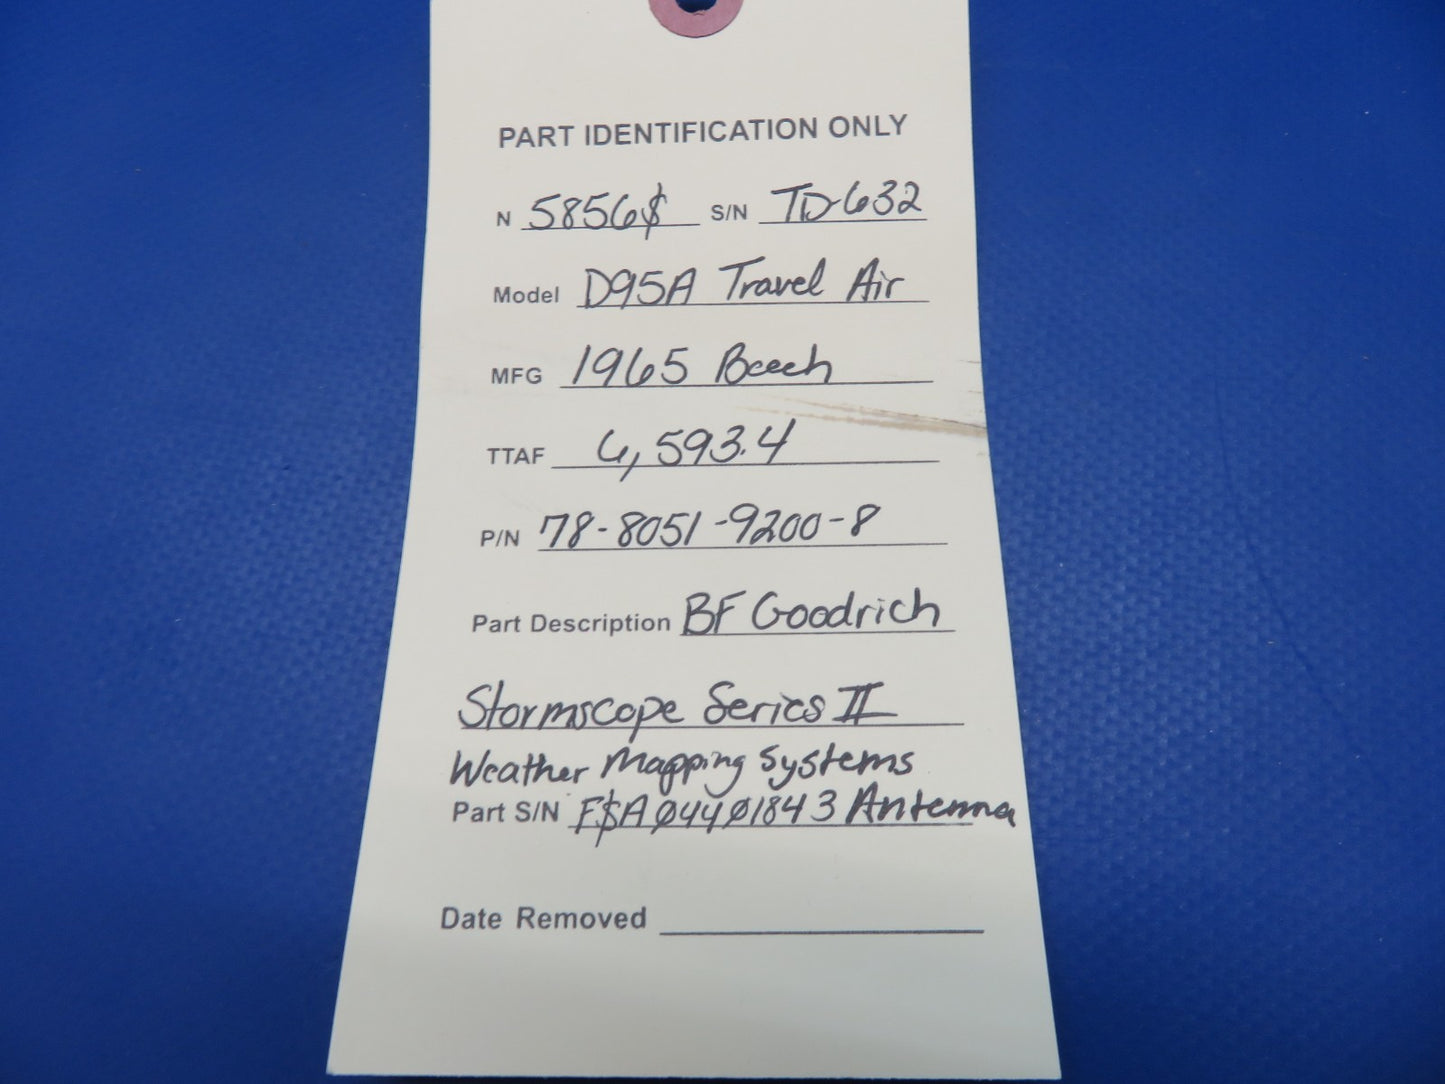 PART IDENTIFICATION ONLY
N 5856$ S/N TD-632
Model D95A Travel Air
MFG 1965 Beech
TTAF 6,593.4
P/N 78-8051-9200-8
Part Description BF Goodrich
Stormscope Series II
Weather Mapping Systems
Part S/N F$AØ44Ø1843 Antenna
Date Removed